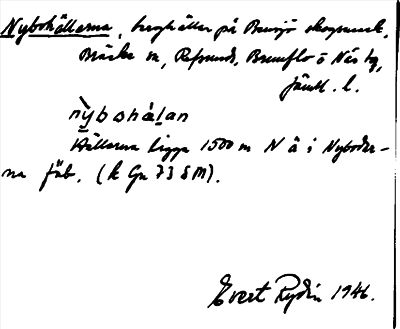 Nybohällarna, berghällar på Bensjö skogsmark,
Bräcke sn, Refsunds, Brunflo o Näs tg,
Jämtl. l.
nybohälan
Hällarna ligga 1500 m N å i Nyboder-
na fäb. (k Gn 73 SM).
Evert Rydin 1946.